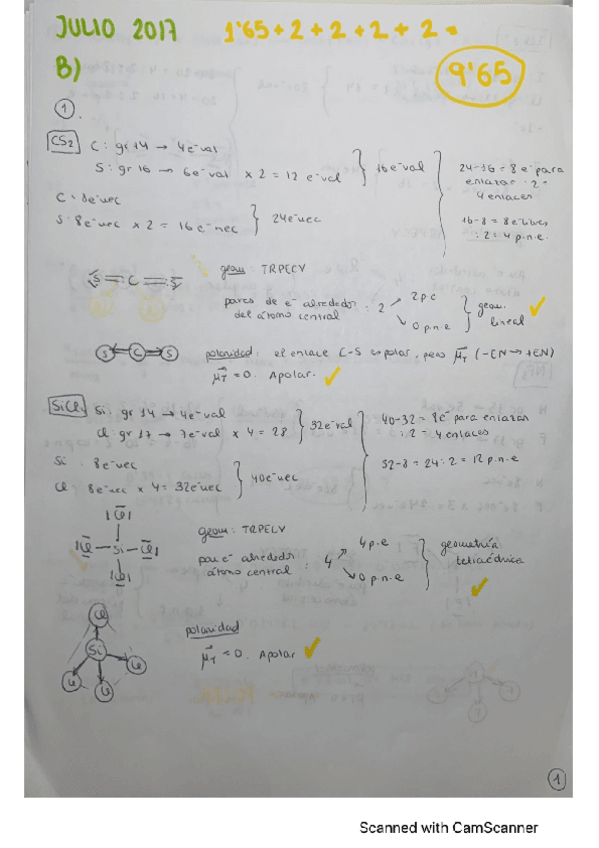 JULIO 2017 1'65 + 2 + 2 + 2 + 2 =
B) 9'65
1.
CS2 C: gr 14 → 4e⁻val
S: gr 16 → 6e⁻val × 2 = 12 e⁻val } 16e⁻val
24-16 = 8 e⁻ para
enlazar : 2 =
4 enlaces
C = 8e⁻nec
S: 8e⁻nec × 2 = 16 e⁻nec } 24e⁻nec
16-8 = 8e⁻libres
: 2 = 4 p.n.e.
S = C = S
geom: TRPECV
pares de e⁻ alrededor
del átomo central : 2
2 p.e
0 p.n.e
geom.
lineal
S C S
polaridad: el enlace C-S es polar, pero μT (-EN → +EN)
μT = 0. Apolar.
SiCl4 Si: gr 14 → 4e⁻val
Cl: gr 17 → 7e⁻val × 4 = 28 } 32e⁻val
40-32 = 8e⁻ para enlazar
: 2 = 4 enlaces
Si : 8e⁻nec
Cl = 8e⁻nec × 4 = 32e⁻nec } 40e⁻nec
32-8 = 24 : 2 = 12 p.n.e
|Cl|
|Cl — Si — Cl|
|Cl|
geom: TRPECV
par e⁻ alrededor
átomo central : 4
4 p.e
0 p.n.e
geometría
tetraédrica
Cl
Si
Cl Cl Cl
polaridad
μT = 0. Apolar
1
Scanned with CamScanner